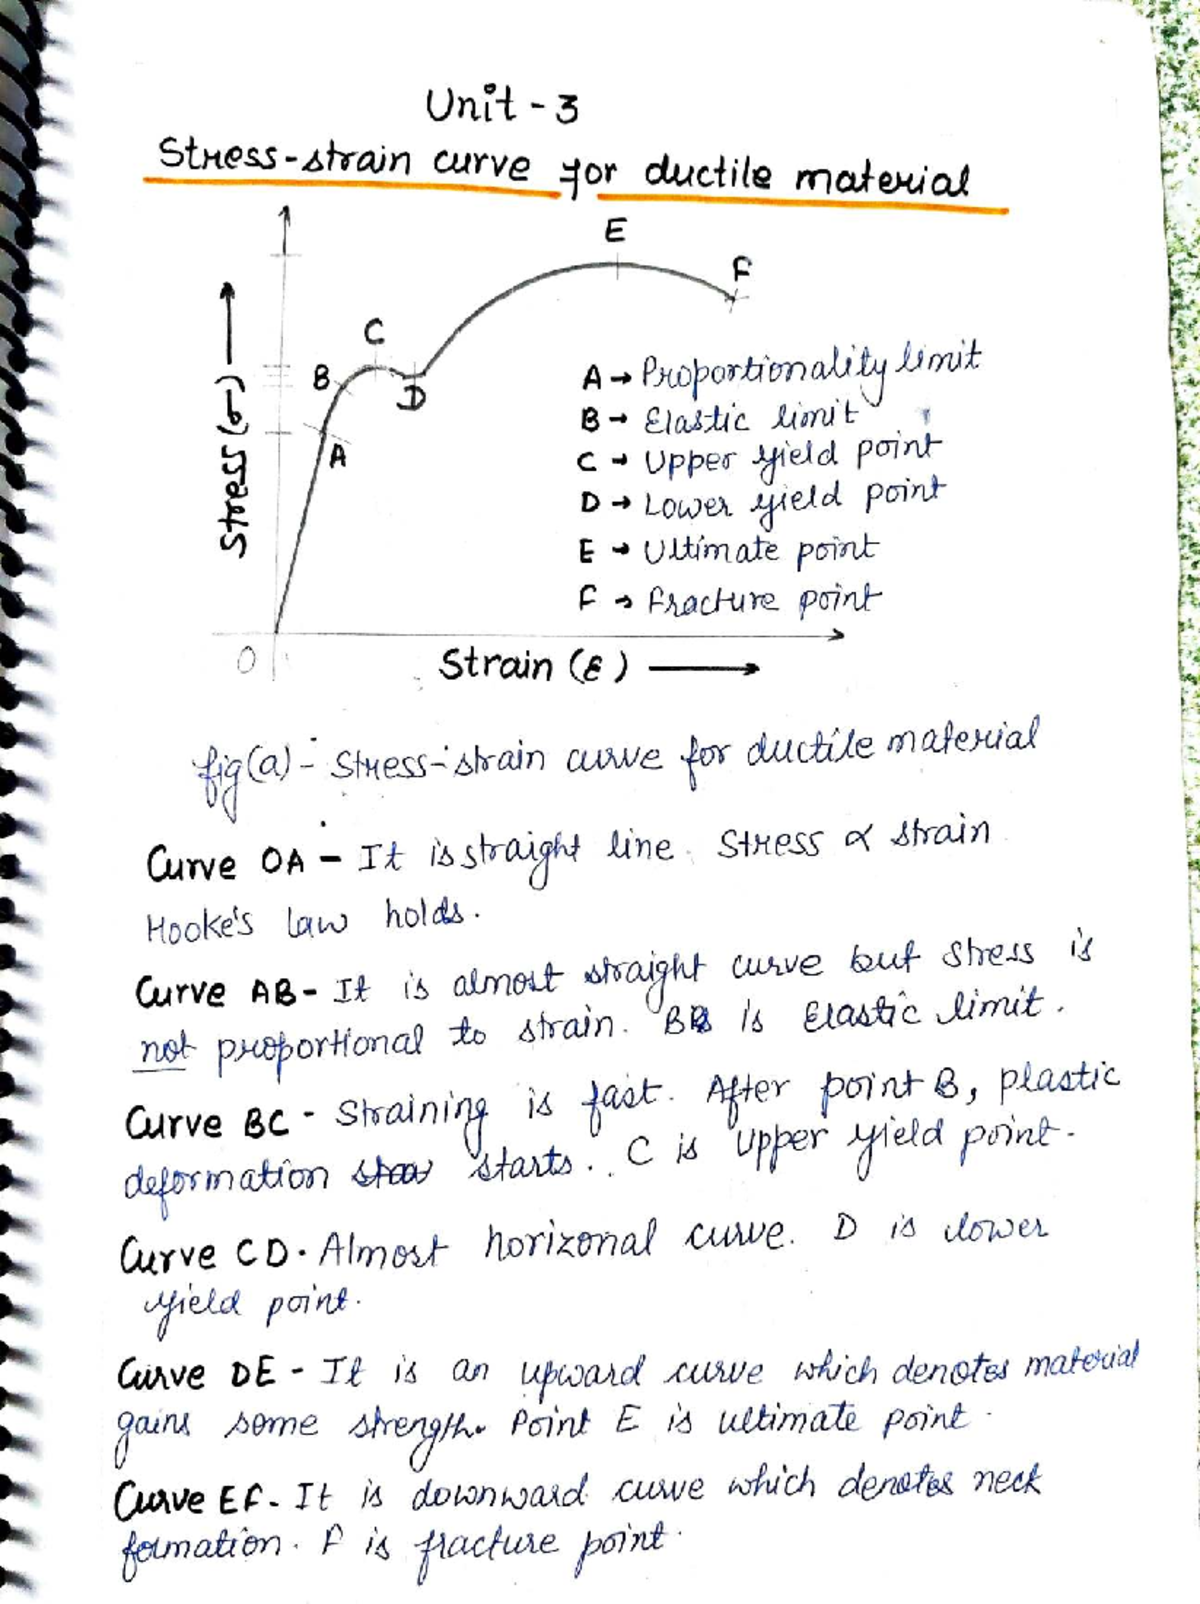 Unit - 3
Stress-strain curve for ductile material
E
F
C
B
D
A
Stress (σ)
A → Proportionality limit
B → Elastic limit
C → Upper yield point
D → Lower yield point
E → Ultimate point
F → Fracture point
O
Strain (ε)
fig(a) - Stress-strain curve for ductile material
Curve OA - It is straight line. Stress ∝ strain
Hooke's law holds.
Curve AB - It is almost straight curve but stress is
not proportional to strain. B is Elastic limit.
Curve BC - Straining is fast. After point B, plastic
deformation starts. C is upper yield point.
Curve CD. Almost horizonal curve. D is lower
yield point.
Curve DE - It is an upward curve which denotes material
gains some strength. Point E is ultimate point.
Curve EF - It is downward curve which denotes neck
formation. F is fracture point.